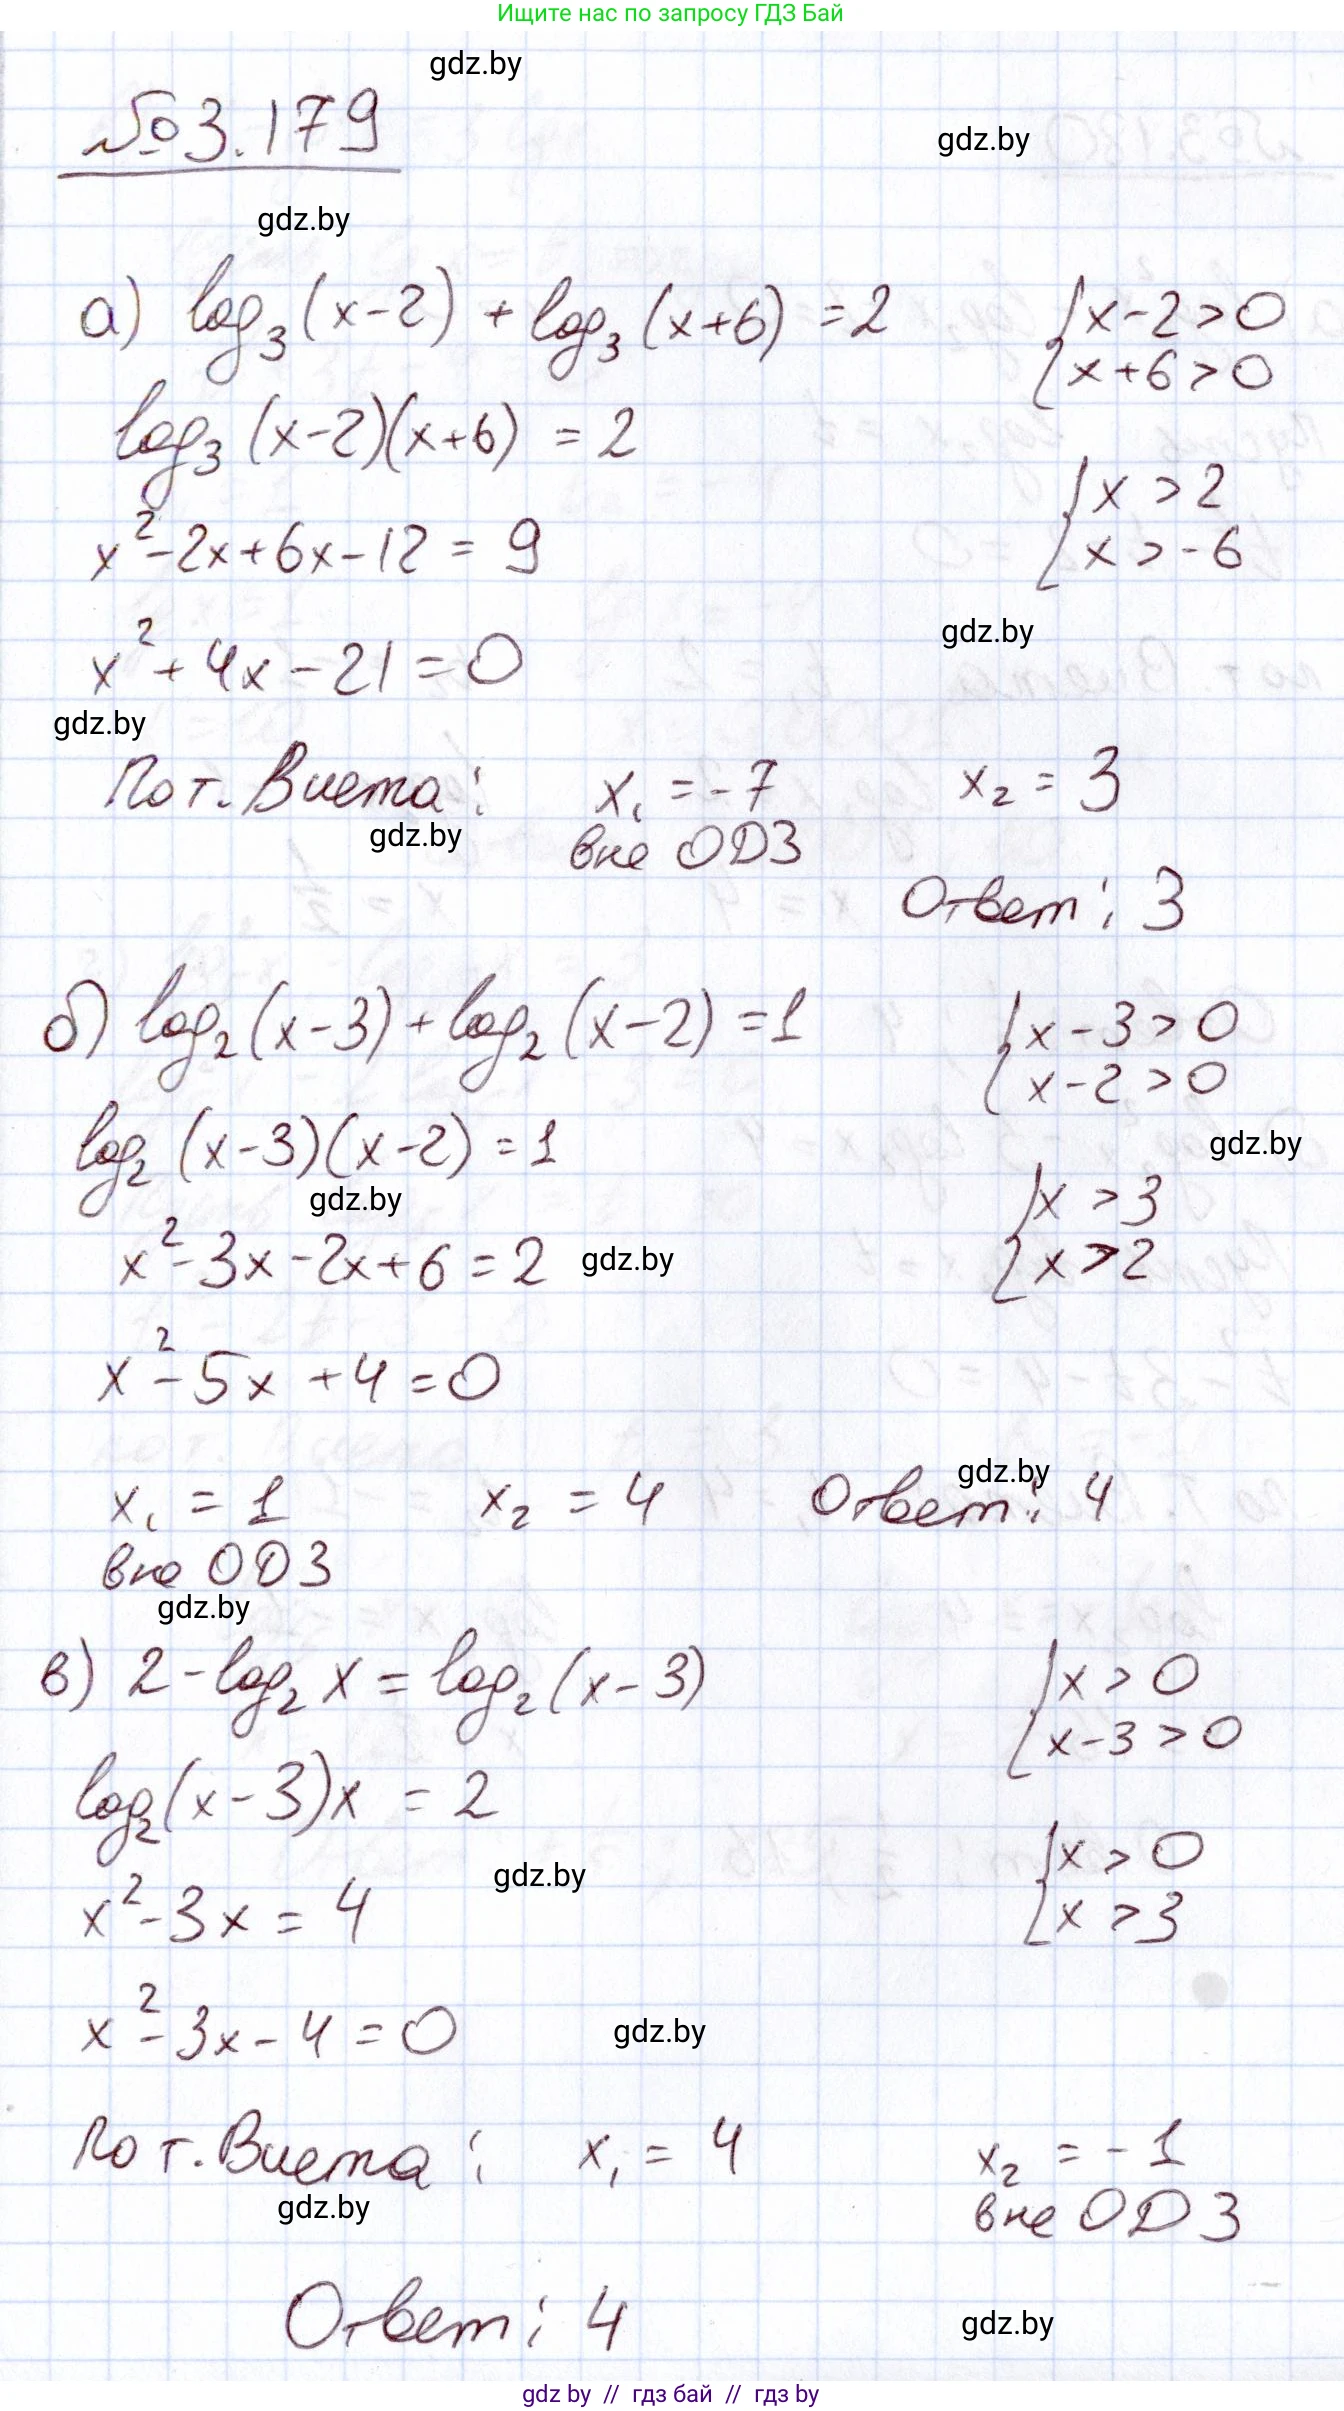 Ищите нас по запросу ГДЗ Бай
gdz.by
№3.179
gdz.by
gdz.by
а) log₃(x-2) + log₃(x+6) = 2
{x-2>0
x+6>0
log₃(x-2)(x+6) = 2
{x>2
x>-6
x²-2x+6x-12=9
gdz.by
x²+4x-21=0
gdz.by
По т. Виета: x₁=-7 x₂=3
gdz.by
вне ОДЗ
Ответ: 3
б) log₂(x-3)+log₂(x-2)=1
{x-3>0
x-2>0
log₂(x-3)(x-2)=1
gdz.by
gdz.by
{x>3
x>2
x²-3x-2x+6=2
gdz.by
x²-5x+4=0
gdz.by
x₁=1 x₂=4 Ответ: 4
вне ОДЗ
gdz.by
в) 2-log₂x=log₂(x-3)
{x>0
x-3>0
log₂(x-3)x=2
{x>0
x>3
gdz.by
x²-3x=4
x²-3x-4=0
gdz.by
По т. Виета: x₁=4 x₂=-1
gdz.by
вне ОДЗ
Ответ: 4
gdz.by
gdz by // гдз бай // гдз by